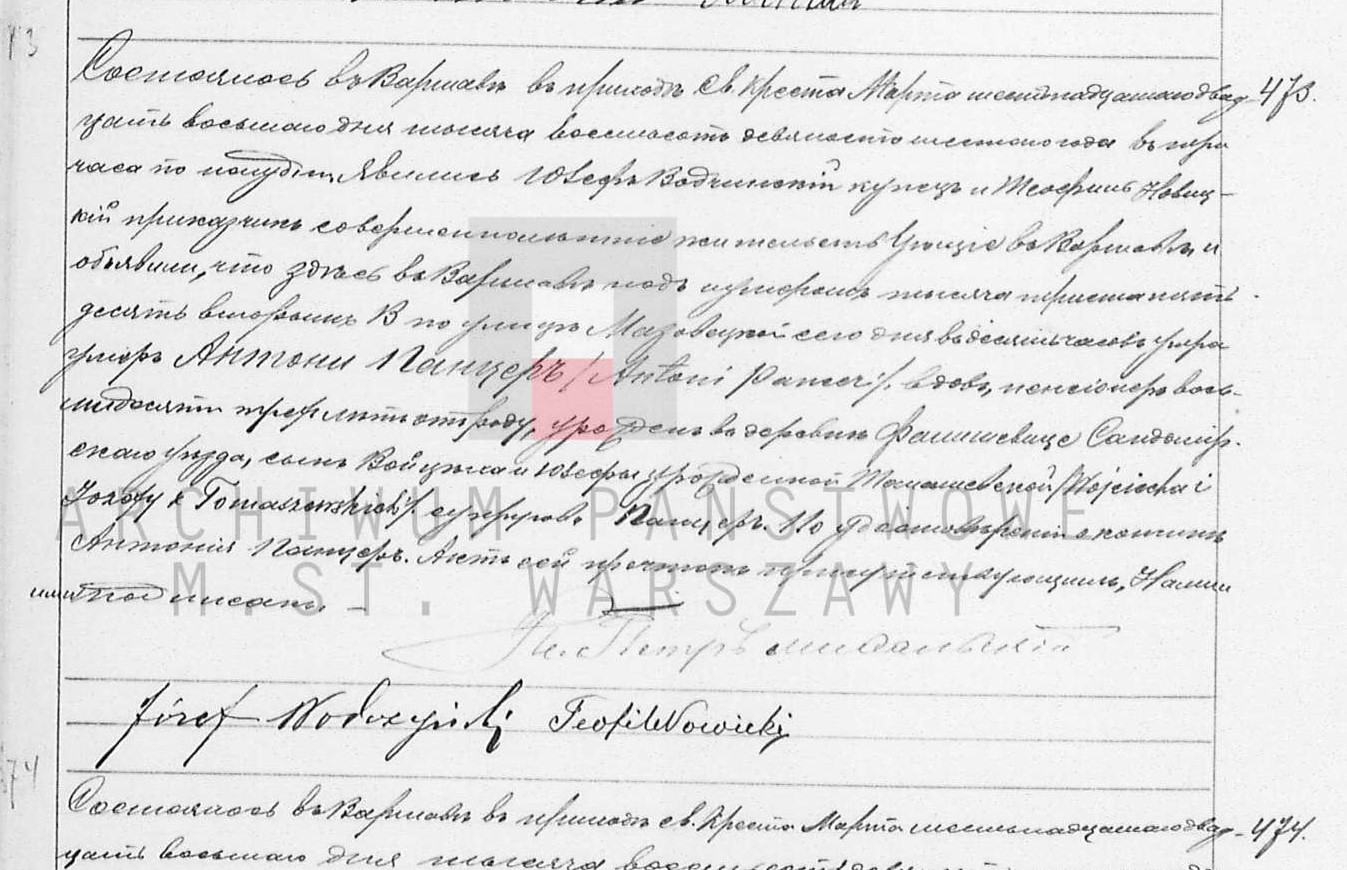 473.
Состоялось въ Варшавѣ въ приходѣ Св. Креста Марта шестнадцатаго двад-
цать восьмаго дня тысяча восемьсотъ девяносто шестого года въ три
часа по полудни. Явились Юзефъ Водчинскій купецъ и Теофиль Новиц-
кій приказчикъ совершеннолѣтніе жительствующіе въ Варшавѣ и
объявили, что здѣсь въ Варшавѣ подъ нумеромъ тысяча триста пять-
десятъ вторымъ В по улицѣ Мазовецкой сего дня въ десять часовъ утра
умеръ Антони Панцеръ /Antoni Pancer/. вдовъ, пенсіонеръ вось-
мидесяти трехъ лѣтъ отъ роду, урожденъ въ деревнѣ Фалишевице Сандомір-
скаго уѣзда, сынъ Войцѣха и Юзефы урожденной Томашевской /Wojciecha i
Jozefy z Tomaszewskich/. супруговъ Панцеръ. По удостовѣреніи о кончинѣ
Антонія Панцеръ. Актъ сей прочтенъ присутствующимъ, Нами и
ими подписанъ. –
Кс. Петръ
Józef Wodczyński Teofil Nowicki
74
Состоялось въ Варшавѣ въ приходѣ св. Креста Марта шестнадцатаго двад- 474.
цать восьмаго дня тысяча
ARCHIWUM PAŃSTWOWE
M. ST. WARSZAWY